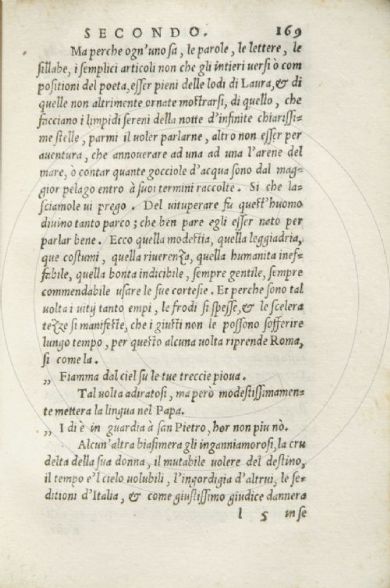 SECONDO. 169
Ma perche ogn'uno sa, le parole, le lettere, le
sillabe, i semplici articoli non che gli intieri uersi ò com
positioni del poeta, esser pieni delle lodi di Laura, & di
quelle non altrimente ornate mostrarsi, di quello, che
facciano i limpidi sereni della notte d'infinite chiarissi-
me stelle, parmi il uoler parlarne, altro non esser per
auentura, che annouerare ad una ad una l'arene del
mare, ò contar quante gocciole d'acqua sono dal mag-
gior pelago entro à suoi termini raccolte. Si che la-
sciamole ui prego. Del uituperare fu quest'huomo
diuino tanto parco; che ben pare egli esser nato per
parlar bene. Ecco quella modestia, quella leggiadria,
que costumi, quella riuerenza, quella humanita inef-
fabile, quella bonta indicibile, sempre gentile, sempre
commendabile usare le sue cortesie. Et perche sono tal
uolta i uitij tanto empi, le frodi si spesse, & le scelera
tezze si manifeste, che i giusti non le possono sofferire
lungo tempo, per questo alcuna uolta riprende Roma,
si come la.
„ Fiamma dal ciel su le tue treccie pioua.
Tal uolta adiratosi, ma però modestissimamen-
te mettera la lingua nel Papa.
„ I di è in guardia à san Pietro, hor non piu nò.
Alcun'altra biasimera gli inganni amorosi, la cru
delta della sua donna, il mutabile uolere del destino,
il tempo e'l cielo uolubili, l'ingordigia d'altrui, le se-
ditioni d'Italia, & come giustissimo giudice dannera
l 5 in se